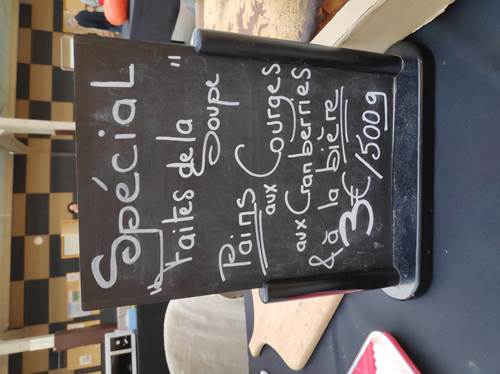 Spécial
"Faites de la
Soupe"
Pains
aux Courges
aux Cranberries
& à la bière
3€/500g